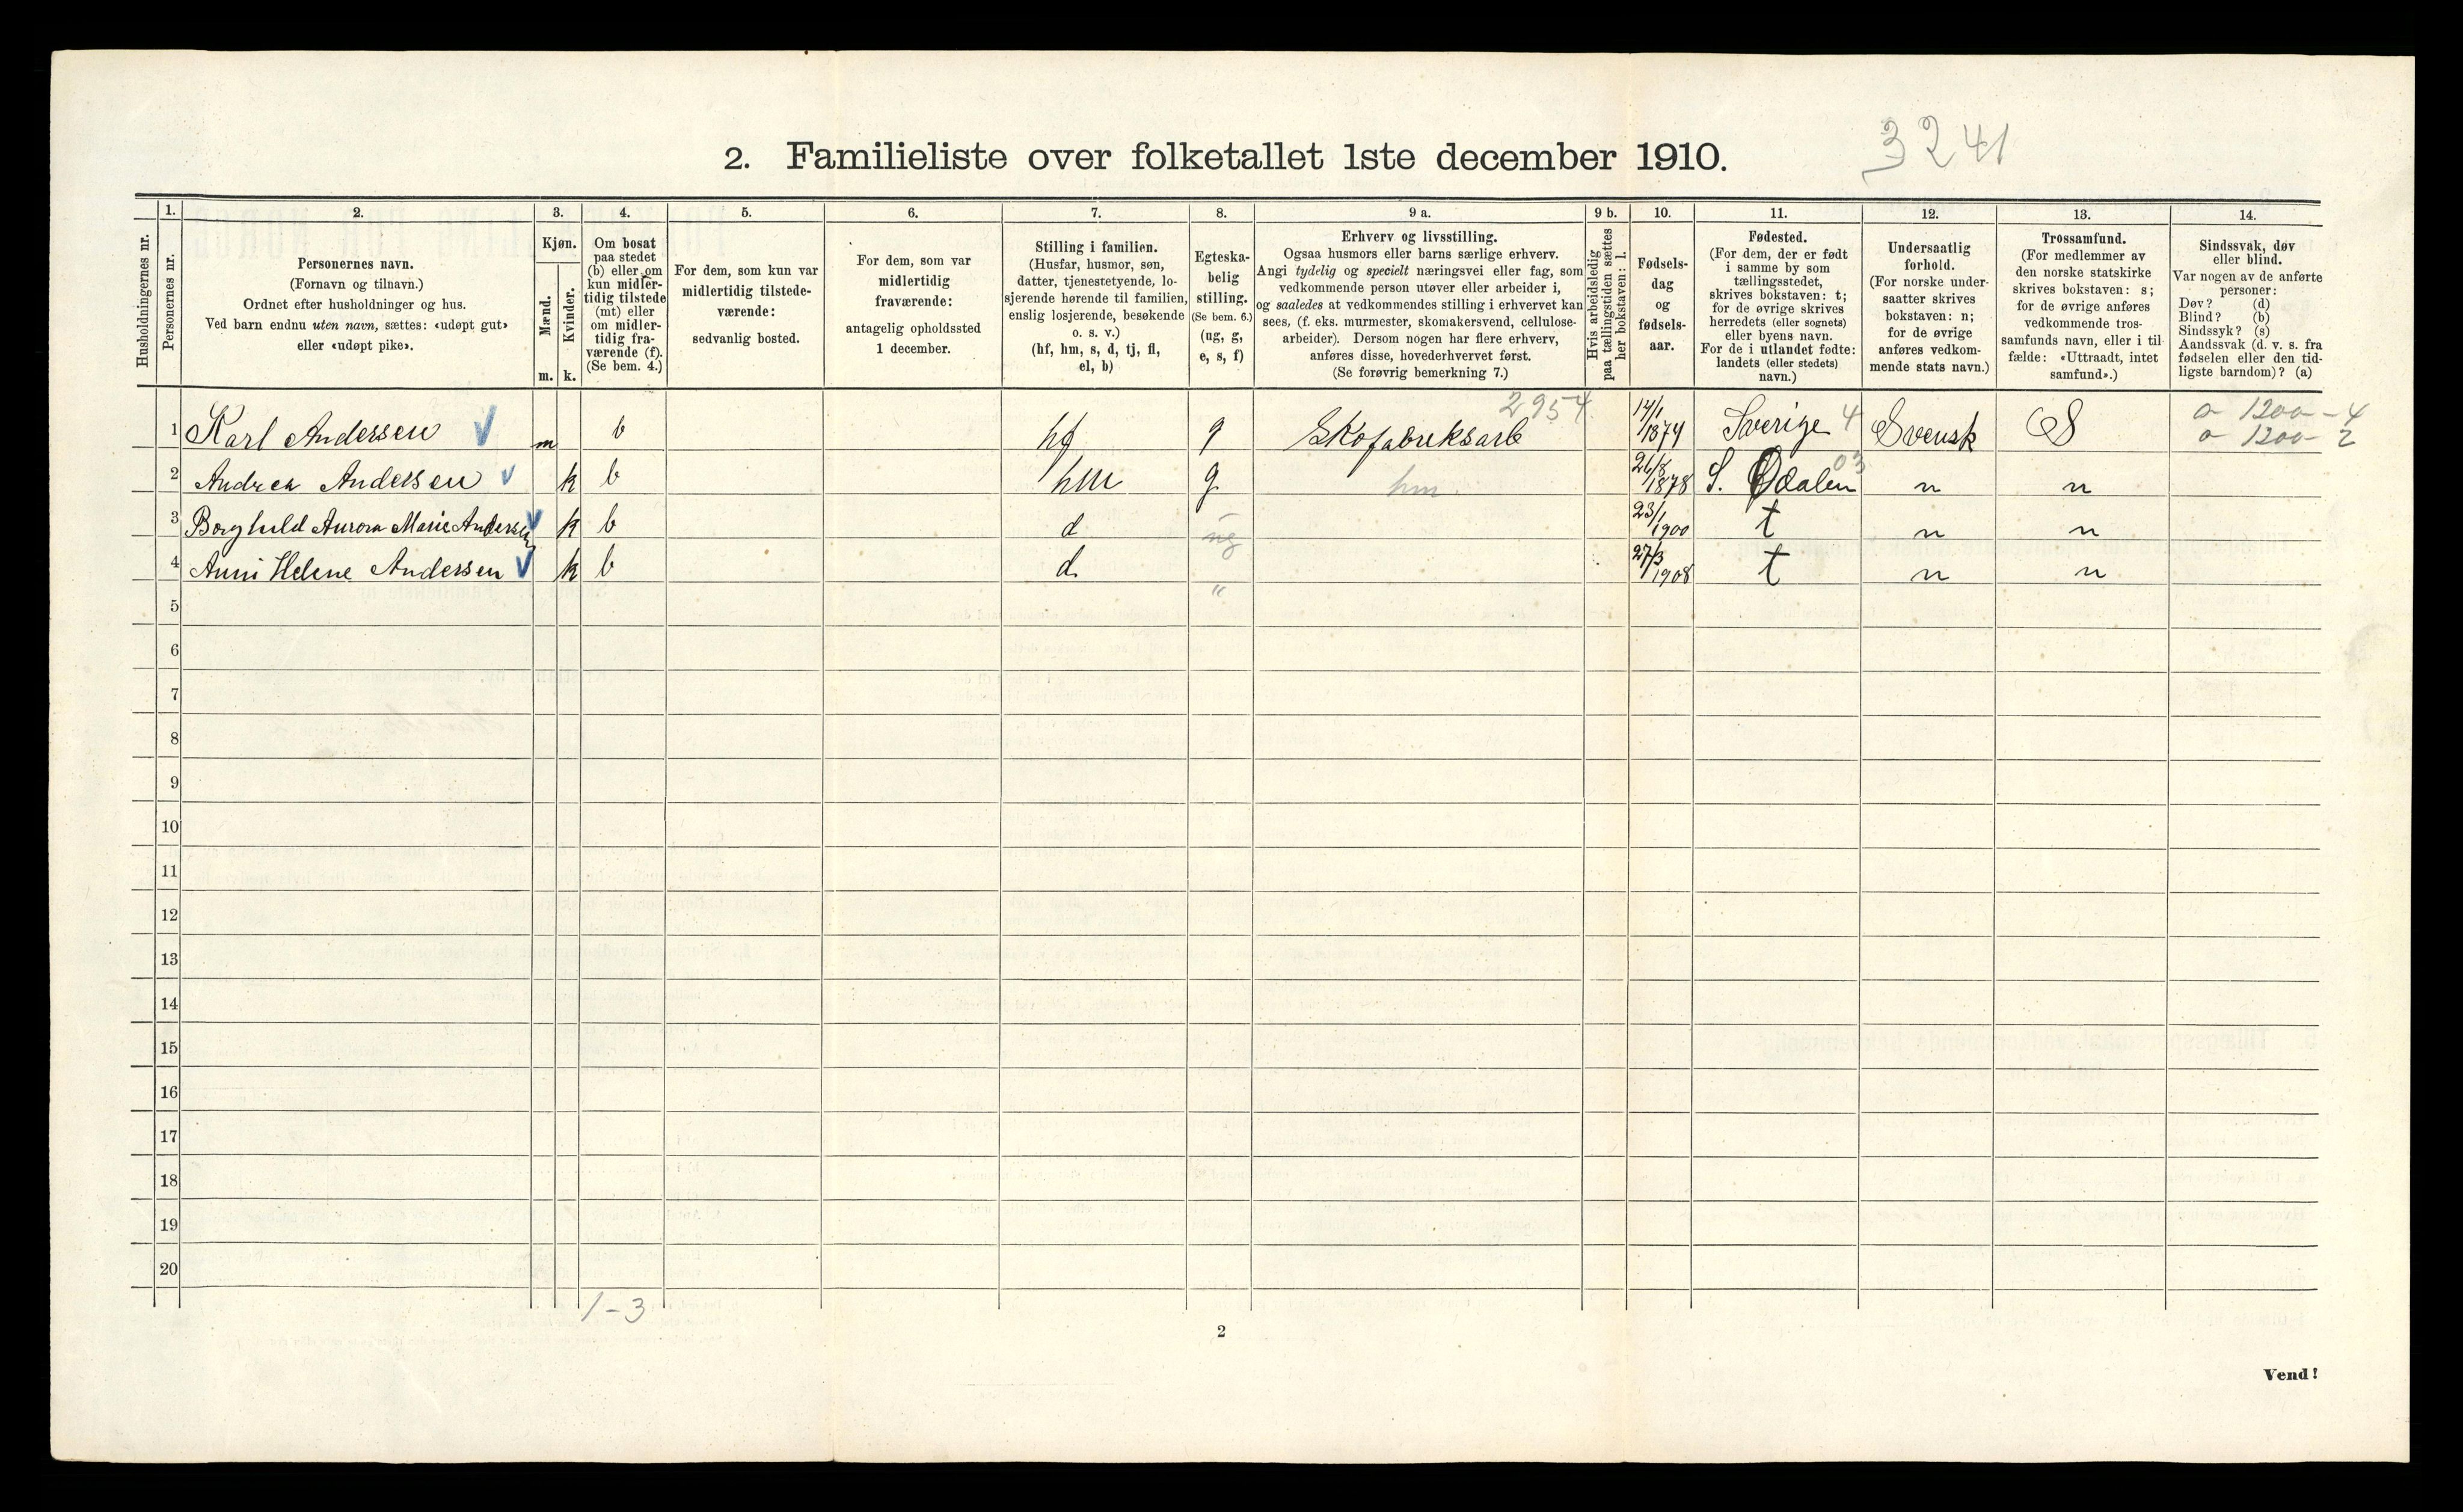 3241
2. Familieliste over folketallet 1ste december 1910.
Husholdningernes nr.
1. Personernes nr.
2. Personernes navn.
(Fornavn og tilnavn.)
Ordnet efter husholdninger og hus.
Ved barn endnu uten navn, sættes: «udøpt gut»
eller «udøpt pike».
3. Kjøn.
Mænd. m.
Kvinder. k.
4. Om bosat
paa stedet
(b) eller om
kun midler-
tidig tilstede
(mt) eller
om midler-
tidig fra-
værende (f).
(Se bem. 4.)
5. For dem, som kun var
midlertidig tilstede-
værende:
sedvanlig bosted.
6. For dem, som var
midlertidig
fraværende:
antagelig opholdssted
1 december.
7. Stilling i familien.
(Husfar, husmor, søn,
datter, tjenestetyende, lo-
sjerende hørende til familien,
enslig losjerende, besøkende
o. s. v.)
(hf, hm, s, d, tj, fl,
el, b)
8. Egteska-
belig
stilling.
(Se bem. 6.)
(ug, g,
e, s, f)
9 a. Erhverv og livsstilling.
Ogsaa husmors eller barns særlige erhverv.
Angi tydelig og specielt næringsvei eller fag, som
vedkommende person utøver eller arbeider i,
og saaledes at vedkommendes stilling i erhvervet kan
sees, (f. eks. murmester, skomakersvend, cellulose-
arbeider). Dersom nogen har flere erhverv,
anføres disse, hovederhvervet først.
(Se forøvrig bemerkning 7.)
9 b. Hvis arbeidsledig
paa tællingstiden sættes
her bokstaven: l.
10. Fødsels-
dag
og
fødsels-
aar.
11. Fødested.
(For dem, der er født
i samme by som
tællingsstedet,
skrives bokstaven: t;
for de øvrige skrives
herredets (eller sognets)
eller byens navn.
For de i utlandet fødte:
landets (eller stedets)
navn.)
12. Undersaatlig
forhold.
(For norske under-
saatter skrives
bokstaven: n;
for de øvrige
anføres vedkom-
mende stats navn.)
13. Trossamfund.
(For medlemmer av
den norske statskirke
skrives bokstaven: s;
for de øvrige anføres
vedkommende tros-
samfunds navn, eller i til-
fælde: «Uttraadt, intet
samfund».)
14. Sindssvak, døv
eller blind.
Var nogen av de anførte
personer:
Døv? (d)
Blind? (b)
Sindssyk? (s)
Aandssvak (d. v. s. fra
fødselen eller den tid-
ligste barndom)? (a)
2954
1 Karl Andersen m b hf g Skofabriksarb 14/1 1874 Sverige 4 Svensk S 1200 - 4
1200 - 2
2 Andrea Andersen k b hm g hm. 26/8 1878 S. Odalen 03 n n
3 Borghild Aurora Marie Andersen k b d ug 23/1 1900 t n n
4 Anni Helene Andersen k b d. " 27/3 1908 t n n
5
6
7
8
9
10
11
12
13
14
15
16
17
18
19
20
1-3
2
Vend!